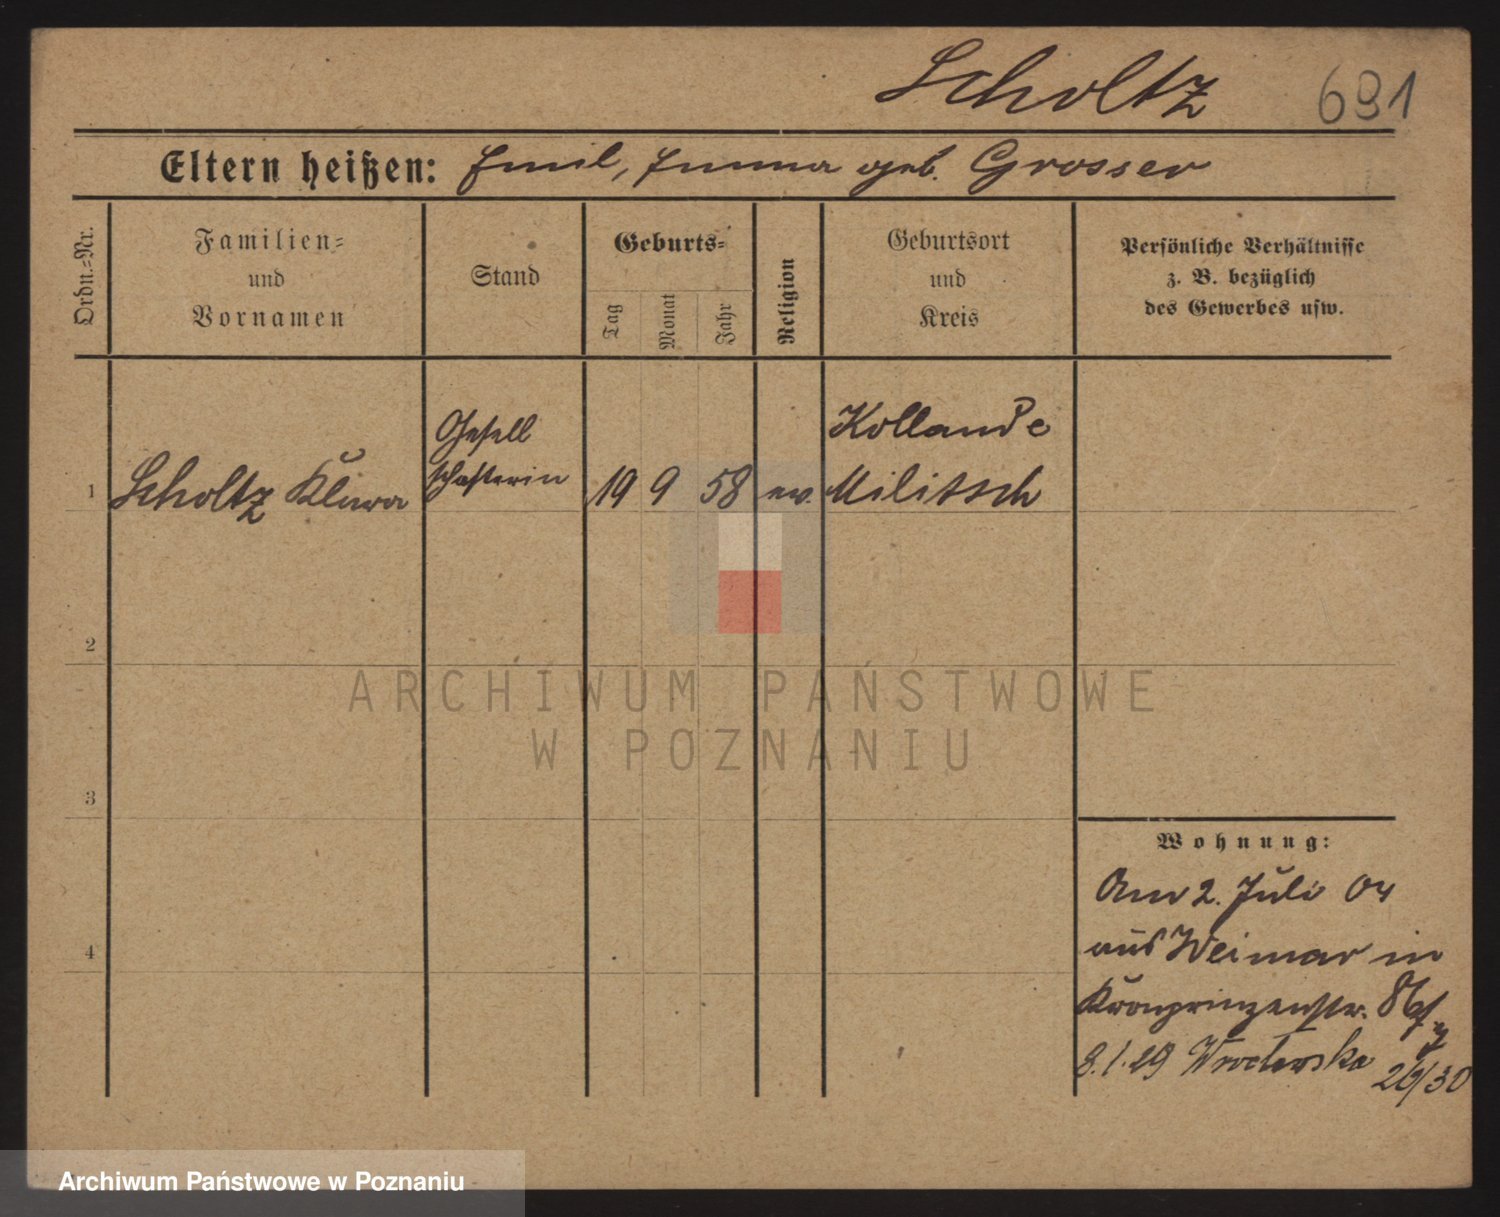 Scholtz 691
Eltern heißen: Emil, Emma geb. Grosser
Ordn.=Nr.
Familien=
und
Vornamen
Stand
Geburts=
Tag
Monat
Jahr
Religion
Geburtsort
und
Kreis
Persönliche Verhältnisse
z. B. bezüglich
des Gewerbes usw.
1 Scholtz Klara
Gesell
schafterin
19 9 58 ev.
Kollande
Militsch
2
3
4
ARCHIWUM PAŃSTWOWE
W POZNANIU
Wohnung:
Am 2. Juli 04
aus Weimar in
Kronprinzenstr. 86
8.1.29 Wrocławska
29/30
Archiwum Państwowe w Poznaniu